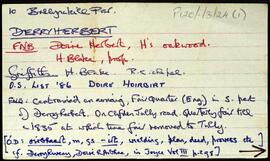 10 Ballynahill Par. P120/13/24(1)
DERRYHERBERT
FNB Doire Herbert, H's oakwood.
H. Blake, prop.
Griffith H. Blake R.C. chapel
O.S. LIST '86 DOIRE HOIRBIRT
FNB: Centred on evening, Fair Quarter (Eng) in S. part
of Derryherbert. On Clifden Tully road. Quarterly fair till
c 1835 at which time fair removed to Tully.
[Ó.D. oirbheart, m, gs -irt, wielding, plan, deed, prowess etc
cf. Derrykeeran, Doire
in Joyce Vol III p. 295]